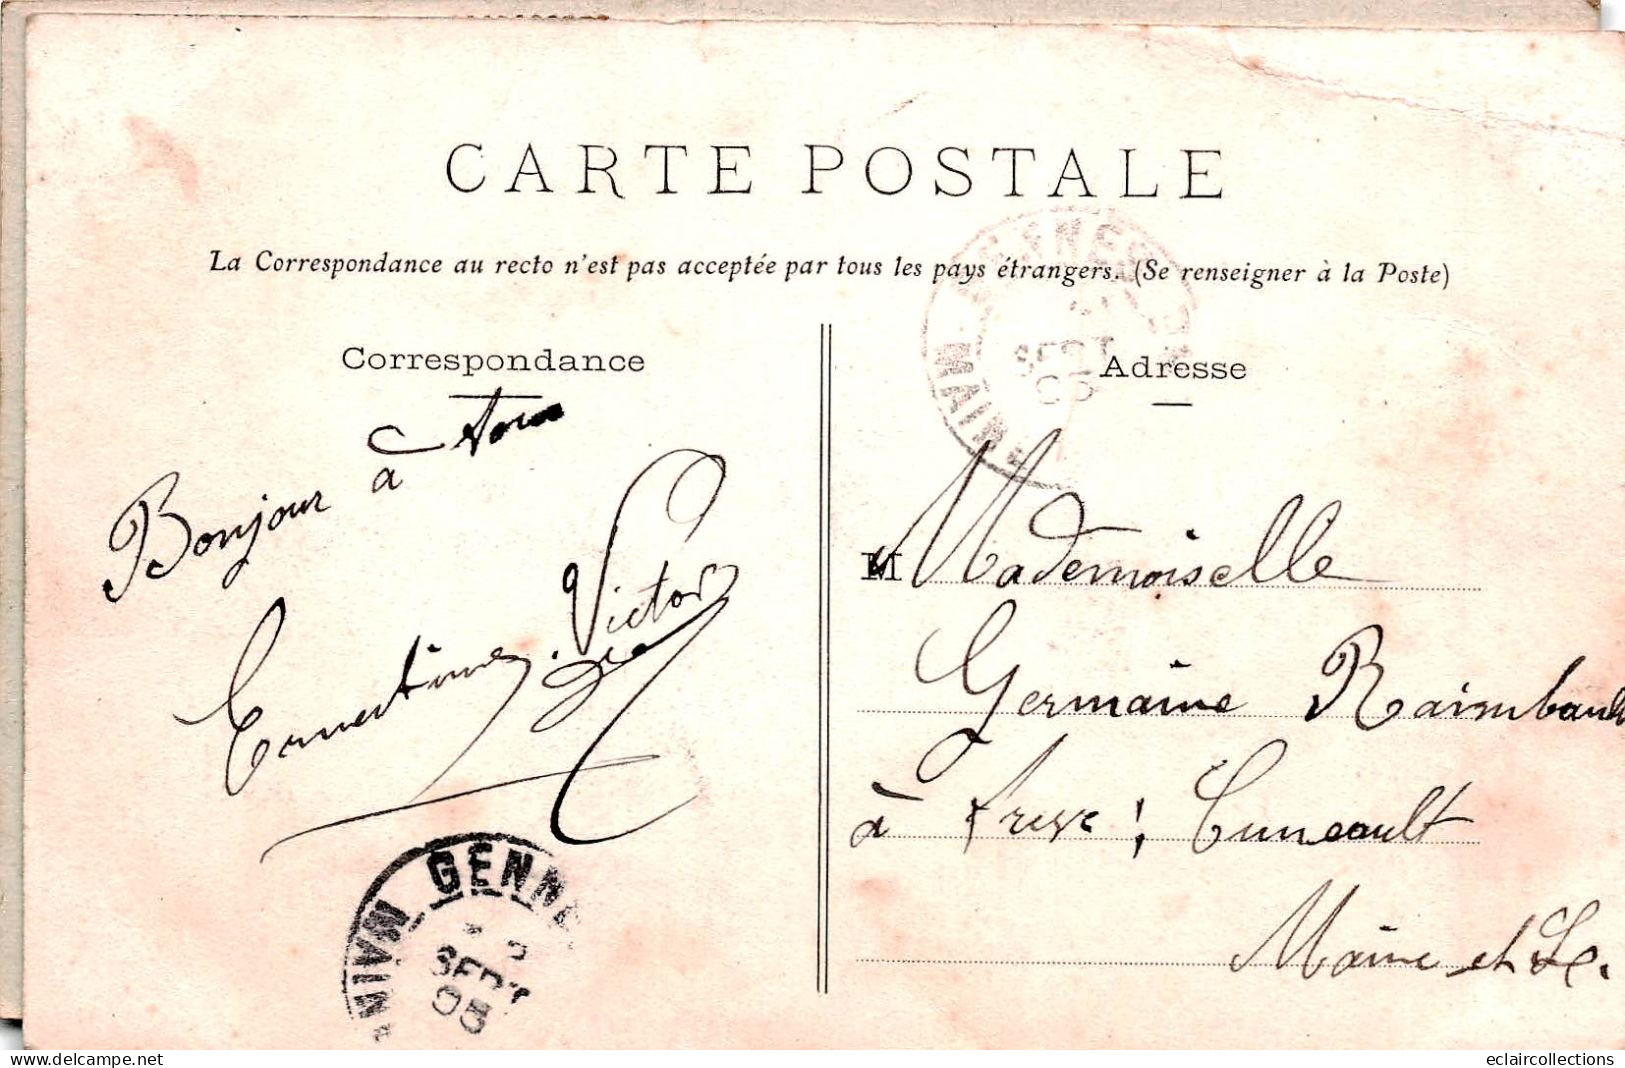 CARTE POSTALE
La Correspondance au recto n'est pas acceptée par tous les pays étrangers. (Se renseigner à la Poste)
Correspondance
Bonjour à tous
Ernestine. Victor
GENNE
MAIN
SEPT
05
Adresse
SEPT
05
MAIN
M Mademoiselle
Germaine Raimbault
à Treve; Cuneault
Maine et L.
delcampe.net
eclaircollections